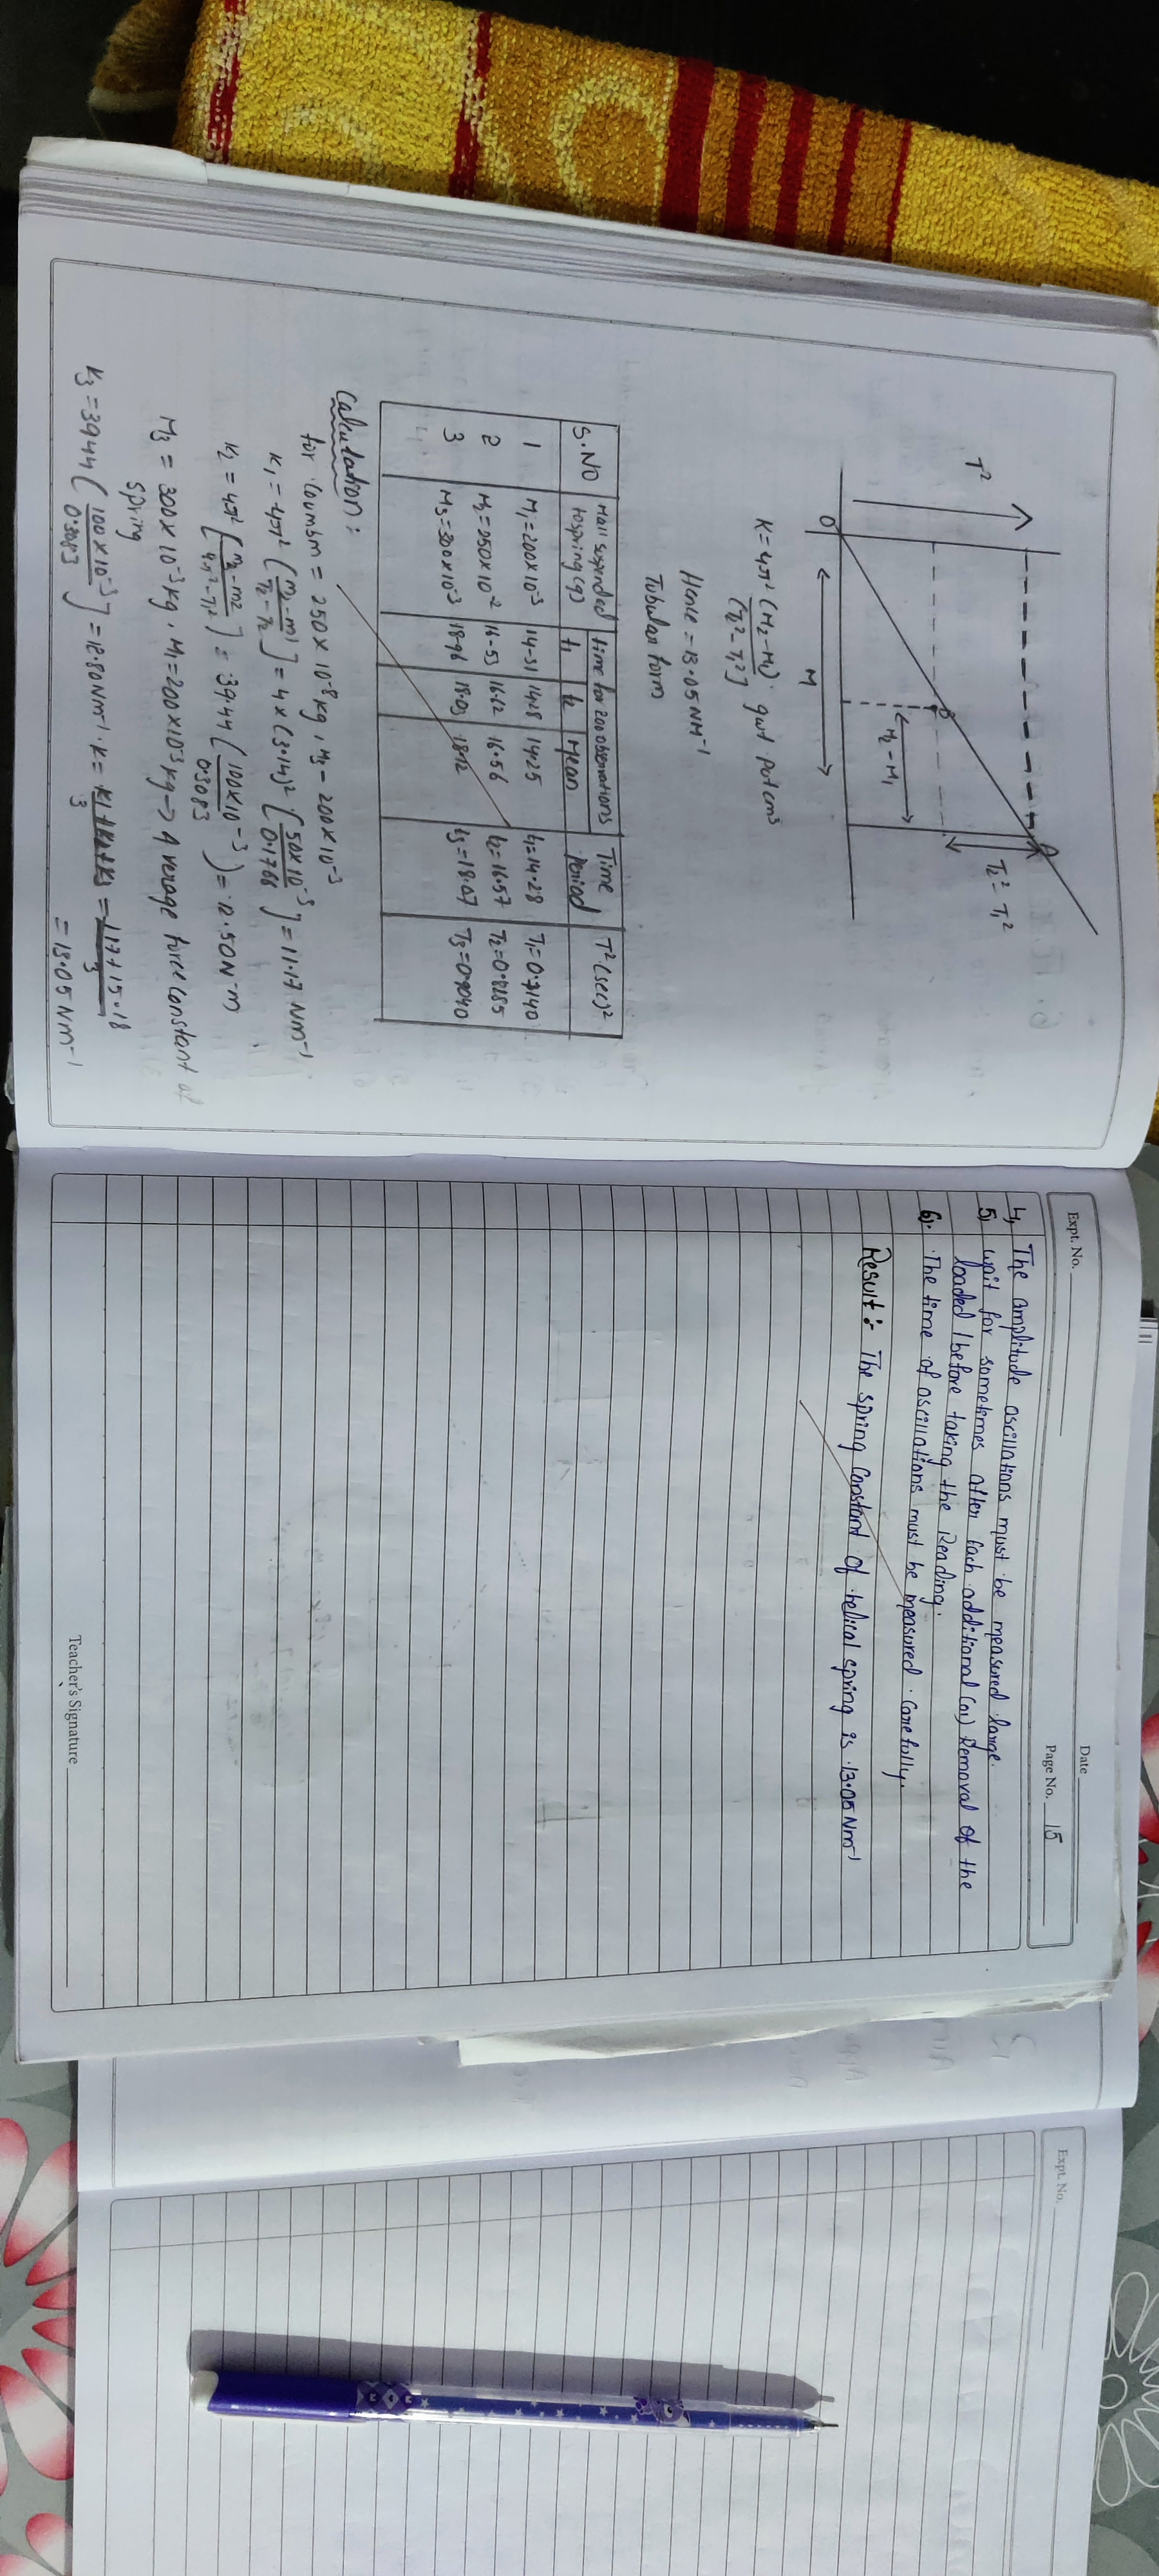 T²
A
T₂² - T₁²
B
M₂ - M₁
O
M
K = 4π² (M₂ - M₁)
(T₂² - T₁²)
Hence = 13.05 NM⁻¹
Tabular form
S.NO
time for 200 observations
Time
period
T² (sec)²
t₁ t₂ Mean
1 M₁=200×10⁻³ 14-31 14.28 14.25 t₁=14.28 T₁=0.7140
2 M₂=250×10⁻² 16-53 16.62 16.56 t₂=16.57 T₂=0.8285
3 M₃=300×10⁻³ 18.96 18.03 18.12 t₃=18.07 T₃=0.9040
Calculation :
= 250×10⁻⁸kg, M₃ - 200×10⁻³
K₁ = 4π² (m₂-m1 / T₂ - T₂] = 4×(3.14)² [50×10⁻³ / 0.1766] = 11.17 Nm⁻¹
K₂ = 4π² [m₃-m2 / 4π²-T₁²] = 39.44 (100×10⁻³ / 0.3083) = 12.50N-m
M₃ = 300×10⁻³kg, M₁=200×10⁻³kg → Average force constant of
spring
K₃ = 3944 (100×10⁻³ / 0.3083] = 12.80Nm⁻¹ . K = K1+K2+K3 / 3 = 1117+15.18 / 3
= 13.05 Nm⁻¹
Expt. No.
Date
Page No. 15
4, The amplitude oscillations must be measured large.
5, wait for sometimes after each additional (or) Removal of the
loaded before taking the Reading.
6). The time of oscillations must be measured carefully.
Result :- The spring constant of helical spring is 13.05 Nm⁻¹
Teacher's Signature
Expt. No.